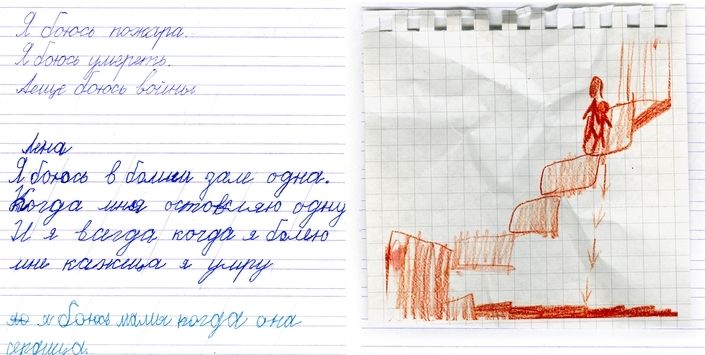 Я боюсь пожара.
Я боюсь умереть.
А еще боюсь войны
Лена
Я боюсь в болшм зале одна.
Когда мня оставляю одну
И я всегда когда я болею
мне кажеца я умру
я боюсь мамы когда она
сердица